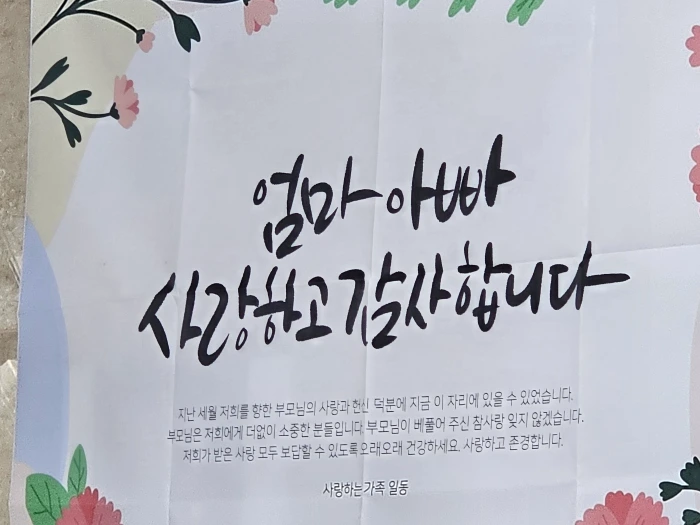 엄마 아빠
사랑하고 감사합니다
지난 세월 저희를 향한 부모님의 사랑과 헌신 덕분에 지금 이 자리에 있을 수 있었습니다.
부모님은 저희에게 더없이 소중한 분들입니다. 부모님이 베풀어 주신 참사랑 잊지 않겠습니다.
저희가 받은 사랑 모두 보답할 수 있도록 오래오래 건강하세요. 사랑하고 존경합니다.
사랑하는 가족 일동